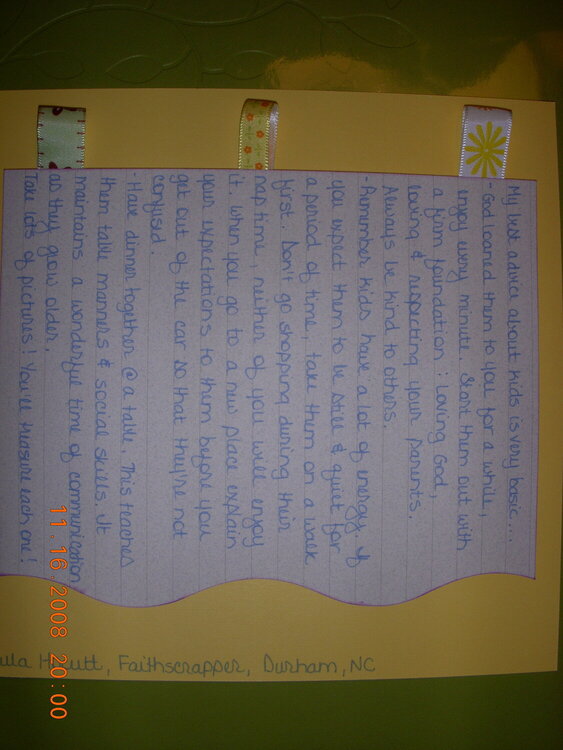 My best advice about kids is very basic....
- God loaned them to you for a while,
enjoy every minute. Start them out with
a firm foundation: Loving God,
loving & respecting your parents.
Always be kind to others.
- Remember kids have a lot of energy. If
you expect them to be still & quiet for
a period of time, take them on a walk
first. Don't go shopping during their
nap time, neither of you will enjoy
it. When you go to a new place explain
your expectations to them before you
get out of the car so that they're not
confused.
- Have dinner together @ a table. This teaches
them table manners & social skills. It
maintains a wonderful time of communication
as they grow older.
Take lots of pictures! You'll treasure each one!
Faithscrapper, Durham, NC
11.16.2008 20:00